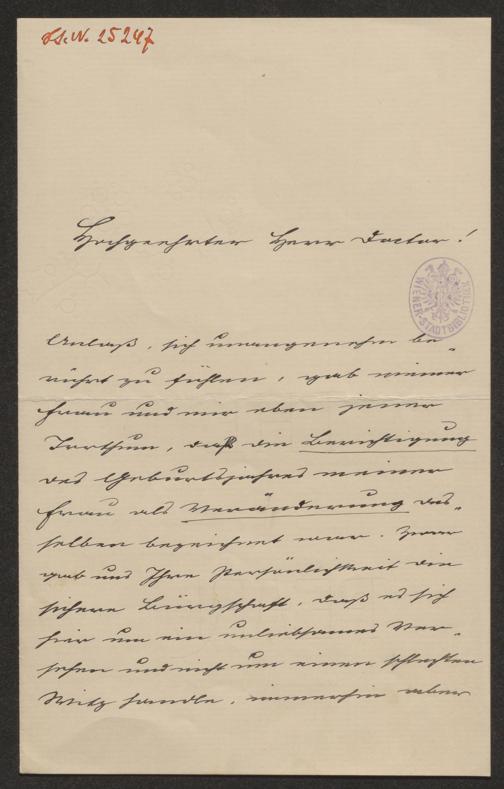 H.I.N. 25247
Hochgeehrter Herr Doctor!
WIENER STADTBIBLIOTHEK
Anlaß, sich unangenehm be-
rührt zu fühlen, gab meiner
Frau und mir eben jener
Irrthum, daß die Berichtigung
des Geburtsjahres meiner
Frau als Veränderung des-
selben bezeichnet war. Zwar
gab uns Ihre Persönlichkeit die
sichere Bürgschaft, daß es sich
hier um ein unliebsames Ver-
sehen und nicht um einen schlechten
Witz handle, immerhin aber